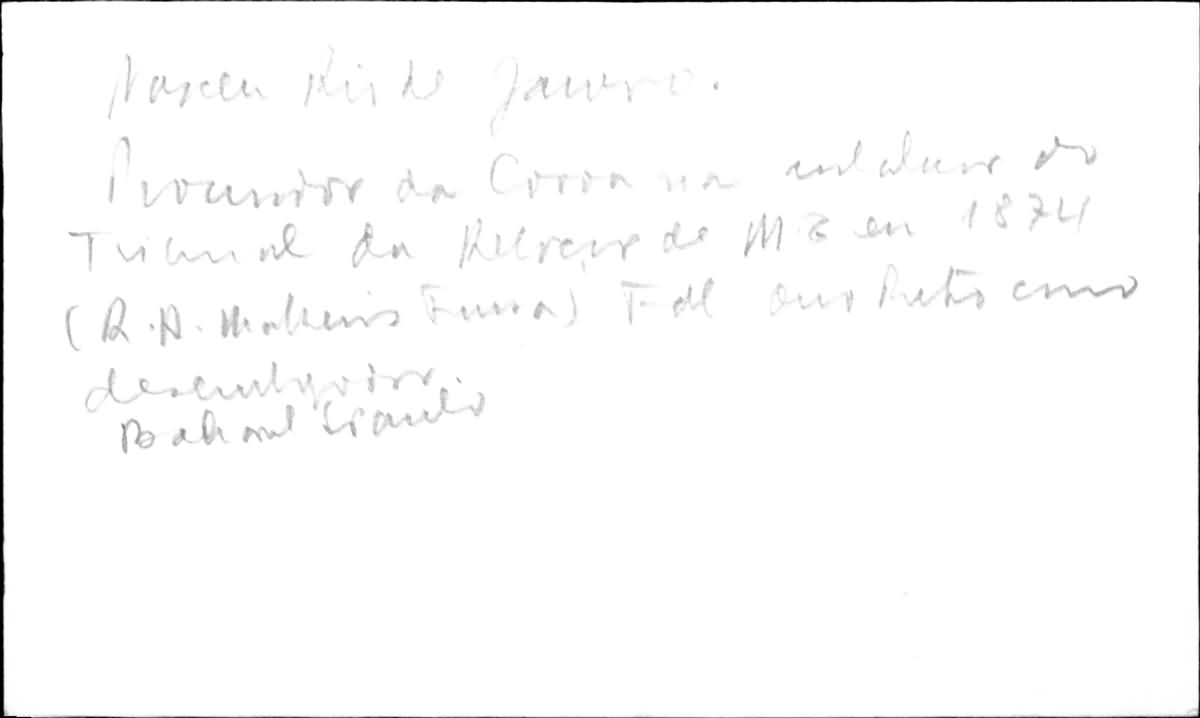 Nasceu Rio de Janeiro.
Procurador da Coroa na instalação do
Tribunal da Relação de MG em 1874
(R. A. Mathias Fonseca) Fal Ouro Preto como
desembargador.